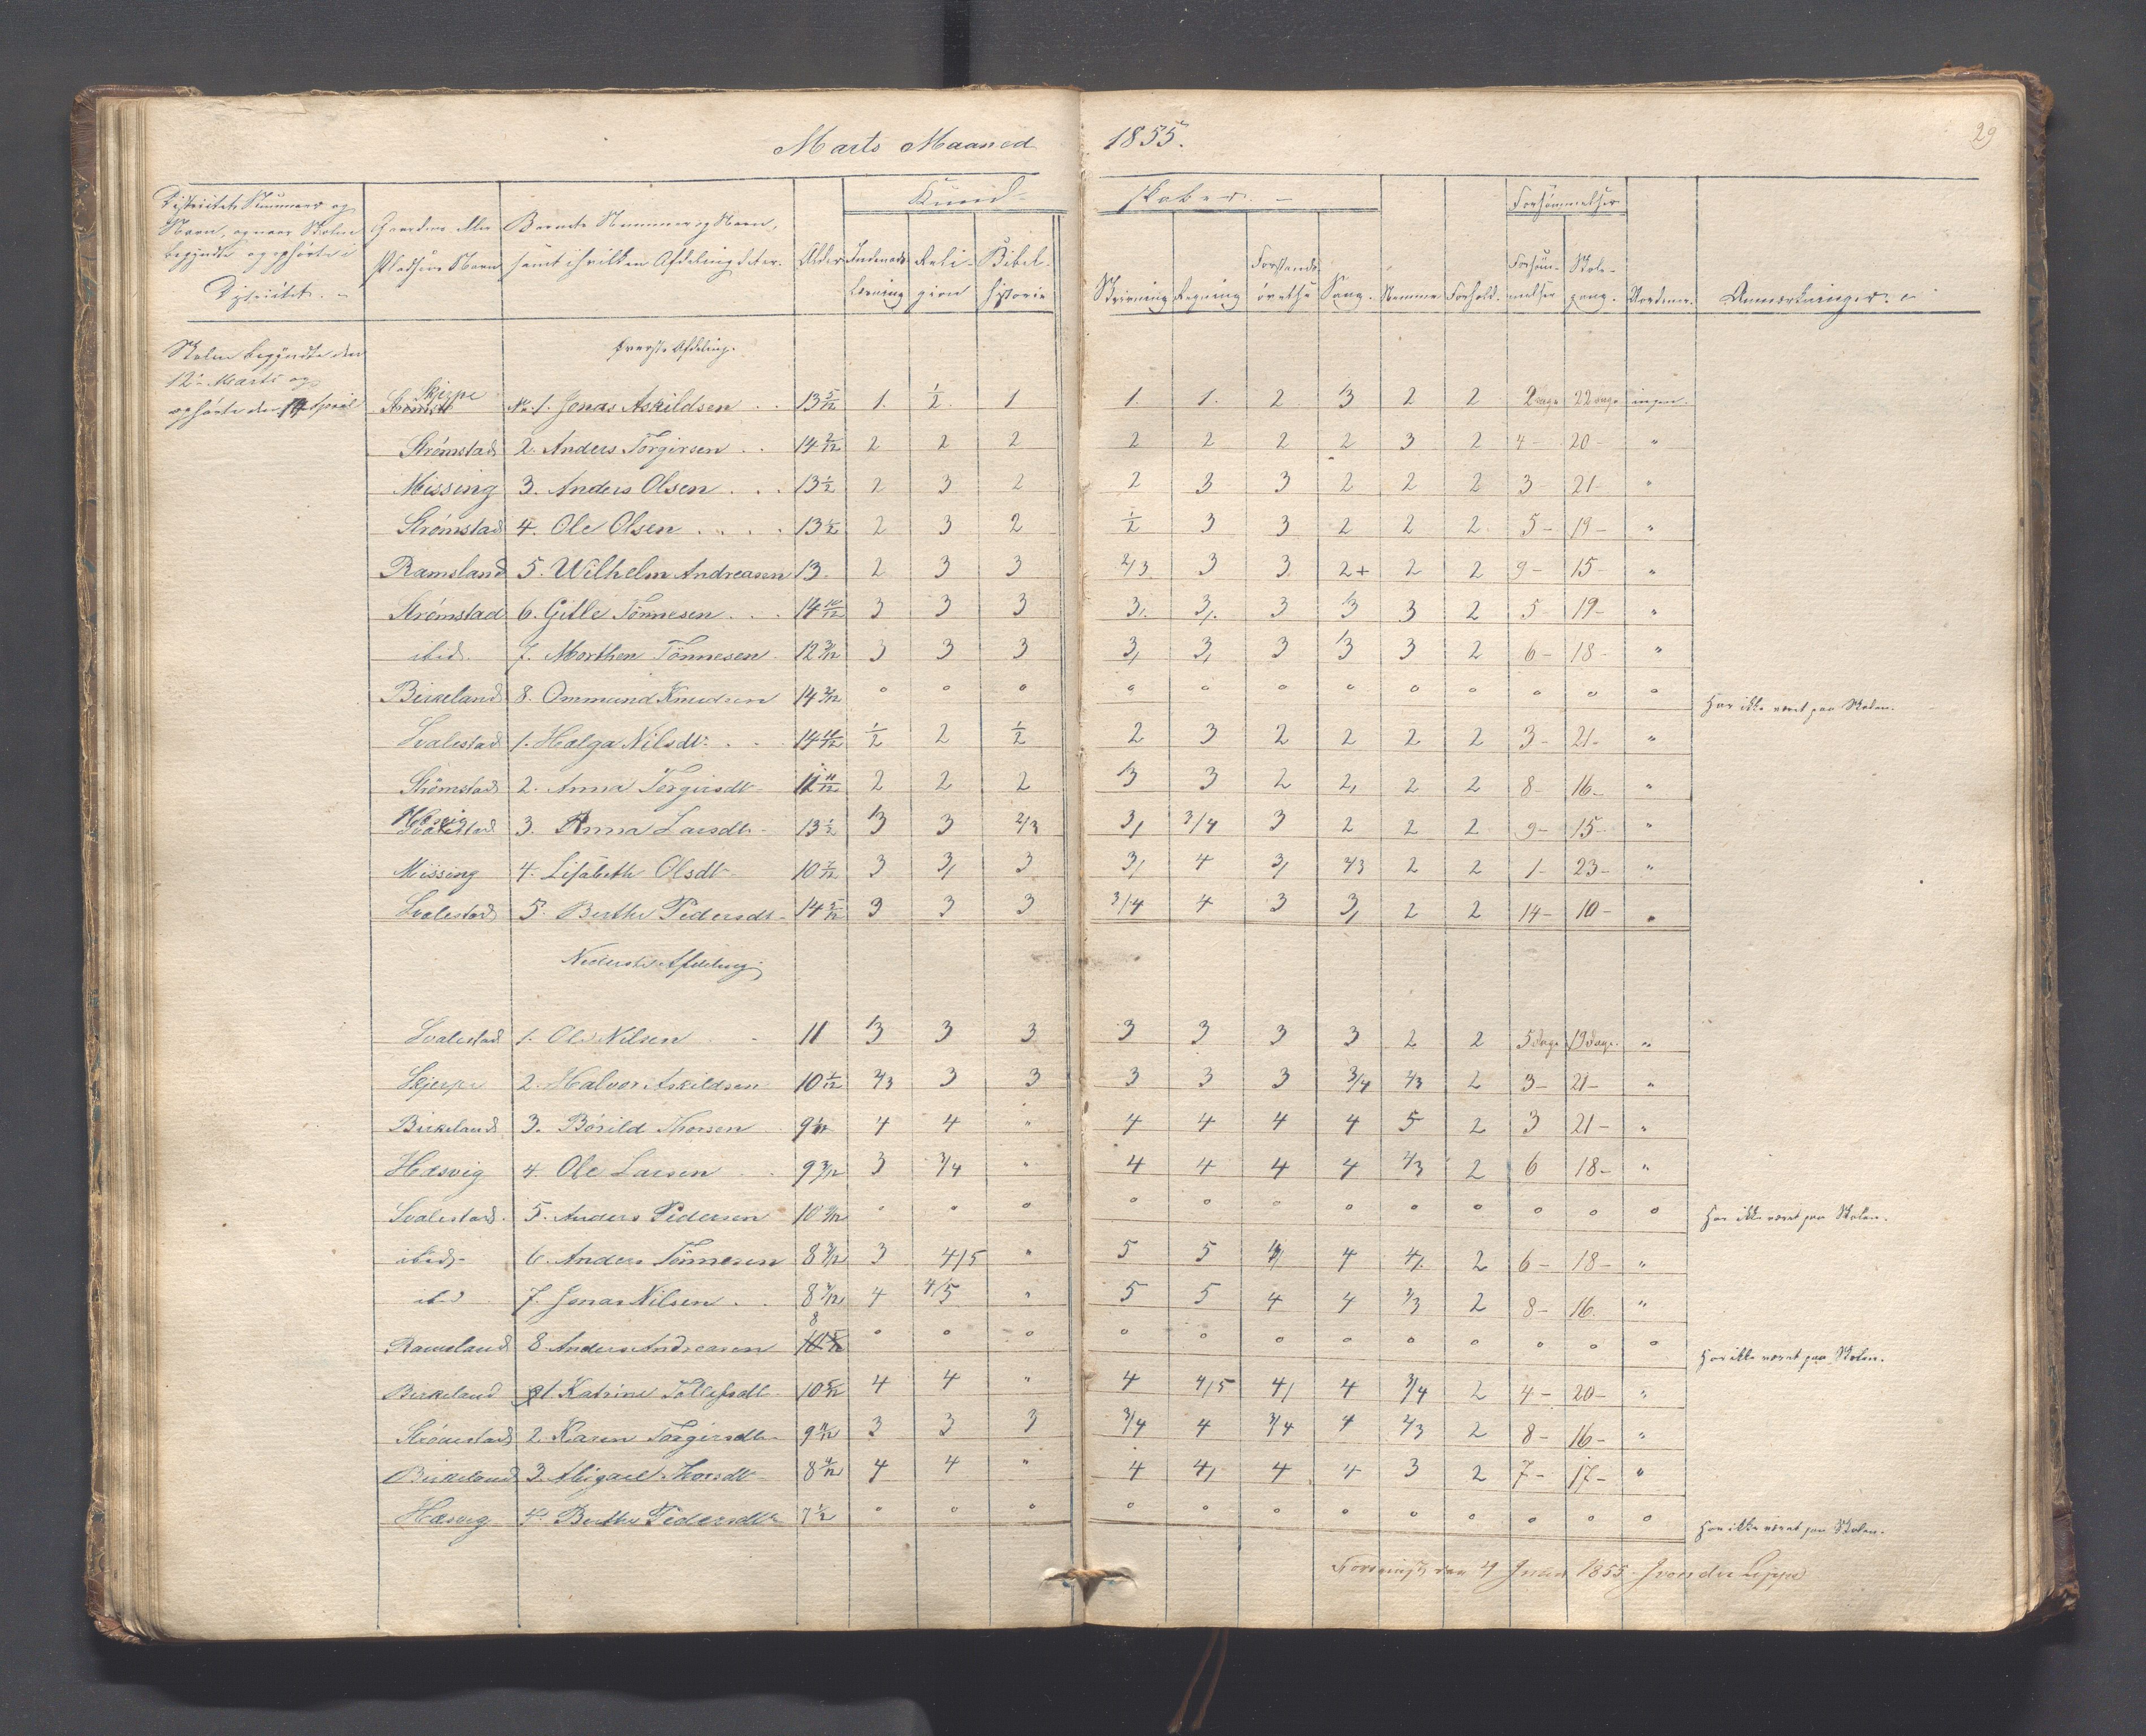 Marts Maaned 1855.
29
Districtets Nummer og
Navn, og naar Skolen
begyndte og ophørte i
Districtet. -
Gaardens eller
Pladsens Navn
Barnets Nummer og Navn,
samt i hvilken Afdeling det er.
Alder
Kund-
skaber. -
Indenads-
læsning
Reli-
gion
Bibel-
historie
Skrivning
Regning
Forstands-
øvelse
Sang.
Stemme
Forhold.
Forsømmelser
Forsøm-
melser
Skole-
gang.
Anmærkninger.
Skolen begyndte den
12te Marts og
ophørte den 14 April
Øverste Afdeling.
Skjerpe No. 1. Jonas Askildsen . . 13 5/12 1. 1/2. 1 1. 1. 2 1/3 2 2 2 dage 22 dage ingen.
Strömstad 2. Anders Torgirsen . . 14 2/12 2 2 2 2 2 2 2 3 2 4 20- "
Missing 3. Anders Olsen . . . 13 1/2 2 3 2 2 3 3 2 2 2 3- 21- "
Strömstad 4. Ole Olsen . . . . 13 1/12 2 3 2 1/2 3 3 2 2 2 5- 19- "
Ramsland 5. Wilhelm Andreasen 13. 2 3 3 2/3 3 3 2+ 2 2 9- 15- "
Strömstad 6. Gitle Tönnesen . . . 14 10/12 3 3 3 3. 3/. 3 1/3 3 2 5- 19- "
ibid. 7. Morthen Tönnesen 12 3/12 3 3 3 3/ 3/ 3 1/3 3 2 6- 18- "
Birkeland 8. Ommund Knudsen 14 3/12 0 0 0 0 0 0 0 0 0 0 0 0 Har ikke været paa Skolen.
Svalestad 1. Helga Nilsdt. . . 14 11/12 1/2 2 1/2 2 3 2 2 2 2 3- 21- "
Strömstad 2. Anna Torgirsdt- 11/12 2 2 2 1/3 3 2 2/ 2 2 8- 16- "
Hæsvig 3. Anna Larsdt- 13 1/2 1/3 3 2/3 3/ 3/4 3 2 2 2 9- 15- "
Missing 4. Lisabeth Olsdt- 10 7/12 3 3/ 3 3/ 4 3/ 2/3 2 2 1- 23- "
Svalestad 5. Berthe Pedersdt- 14 5/12 3 3 3 3/4 4 3 3/ 2 2 14- 10- "
Nederste Afdeling.
Svalestad 1. Ole Nilsen 11 1/3 3 3 3 3 3 3 2 2 5 dage 19 dage. "
Skjerpe 2. Halvor Askildsen 10 1/12 2/3 3 3 3 3 3 3/4 2/3 2 3- 21- "
Birkeland 3. Börild Thorsen 4 4 " 4 4 4 4 5 2 3 21- "
Hæsvig 4. Ole Larsen 9 3/12 3 3/4 " 4 4 4 4 2/3 2 6 18- "
Svalestad. 5. Anders Pedersen 10 3/12 0 0 0 0 0 0 0 0 0 0 0 0 Har ikke været paa Skolen.
ibid- 6. Anders Tönnesen 8 3/12 3 4/5 " 5 5 4 4/. 2 6- 18- "
ibid 7. Jonas Nilsen . . 8 3/12 4 4/5 " 5 5 4 4 2/3 2 8- 16. "
Ramsland 8. Anders Andreasen 8 0 0 0 0 0 0 0 0 0 0 0 0 Har ikke været paa Skolen.
Birkeland 1. Katrine Tollefsdt- 10 5/12 4 4 " 4 4/5 4/ 4 3/4 2 4- 20- "
Strömstad 2. Karen Torgirsdt- 9 11/12 3 3 3 3/4 4 3/4 4 2/3 2 8- 16- "
Birkeland 3. Abigael Thorsdt- 8 4/12 4 4 " 4 4/ 4 4 3 2 7- 17- "
Hæsvig 4. Berthe Pedersdt- 7 1/2 0 0 0 0 0 0 0 0 0 0 0 0 Har ikke været paa Skolen.
Forevist den 4 Juni 1855